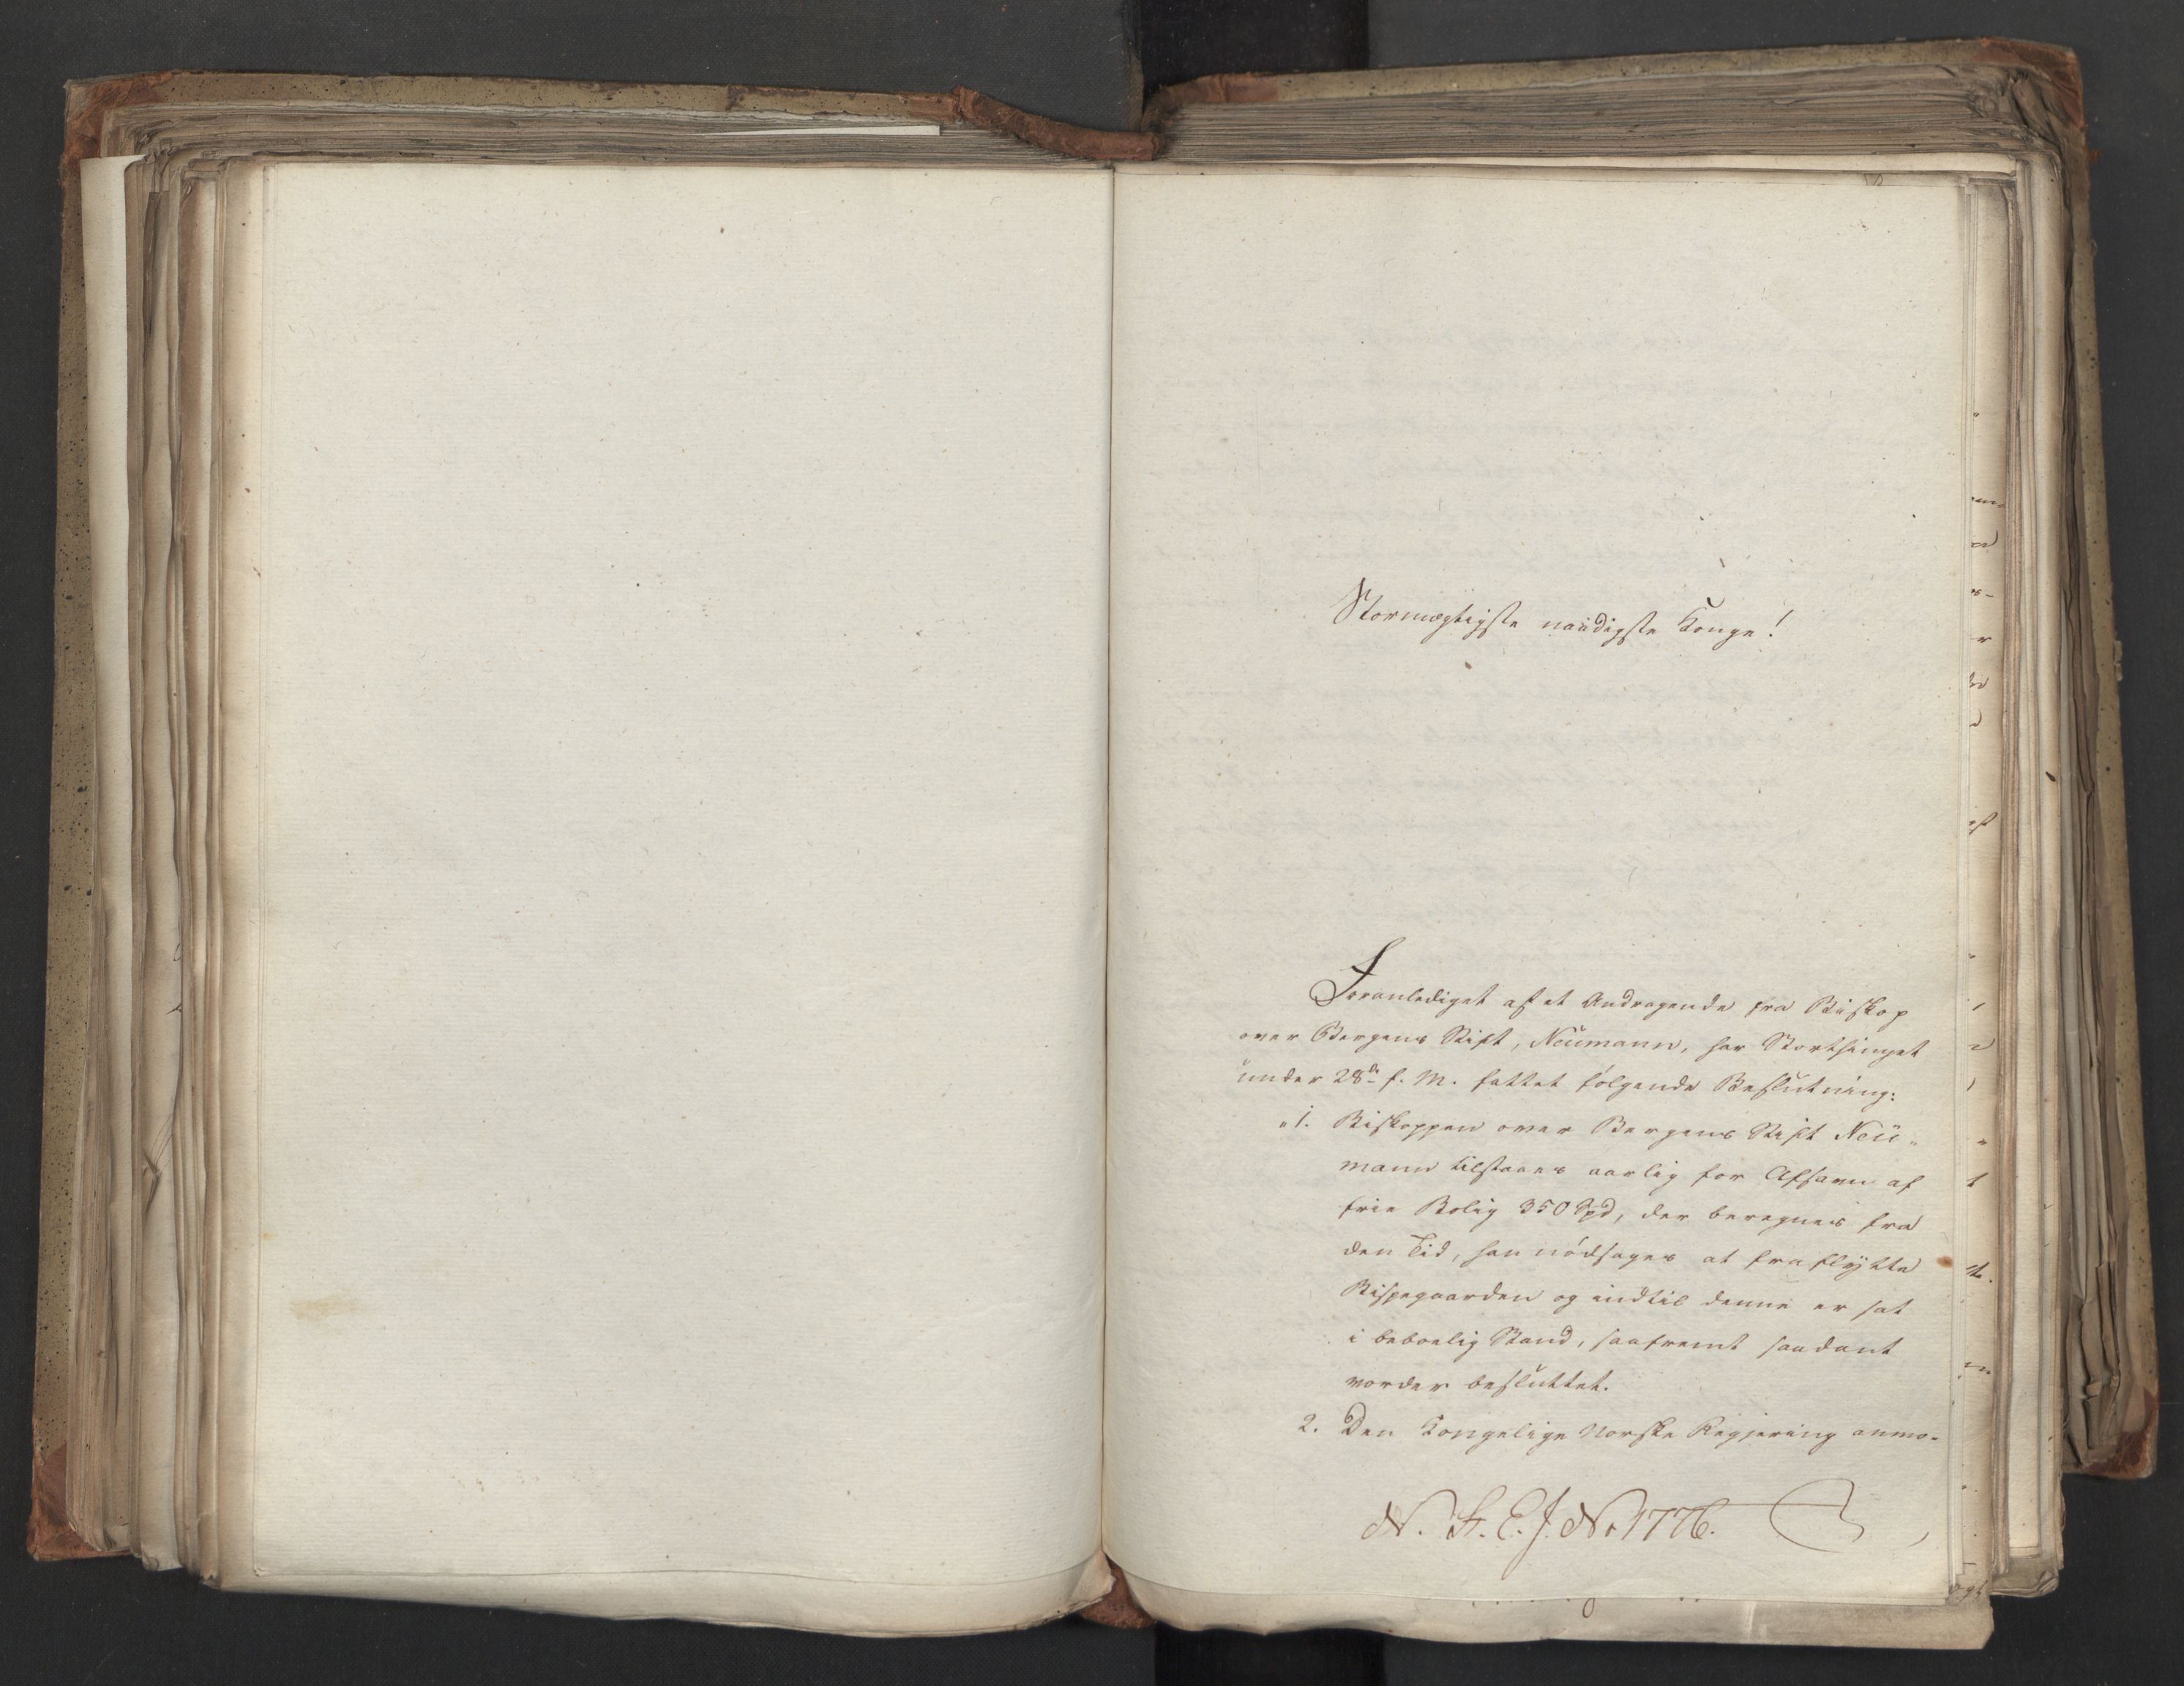 Stormægtigste naadigste Konge!
Foranlediget af et Andragende fra Biskop
over Bergens Stift, Neumann, har Storthinget
under 28de f. M. fattet følgende Beslutning:
„1. Biskoppen over Bergens Stift Neu„
mann tilstaaes aarlig for Afsavn af
frie Bolig 350 Spd, der beregnes fra
den Tid, han nødsages at fraflytte
Bispegaarden og indtil denne er sat
i beboelig Stand, saafremt saadant
vorder besluttet.
2. Den Kongelige Norske Regjering anmo-
N. St. E. J. No 1776.